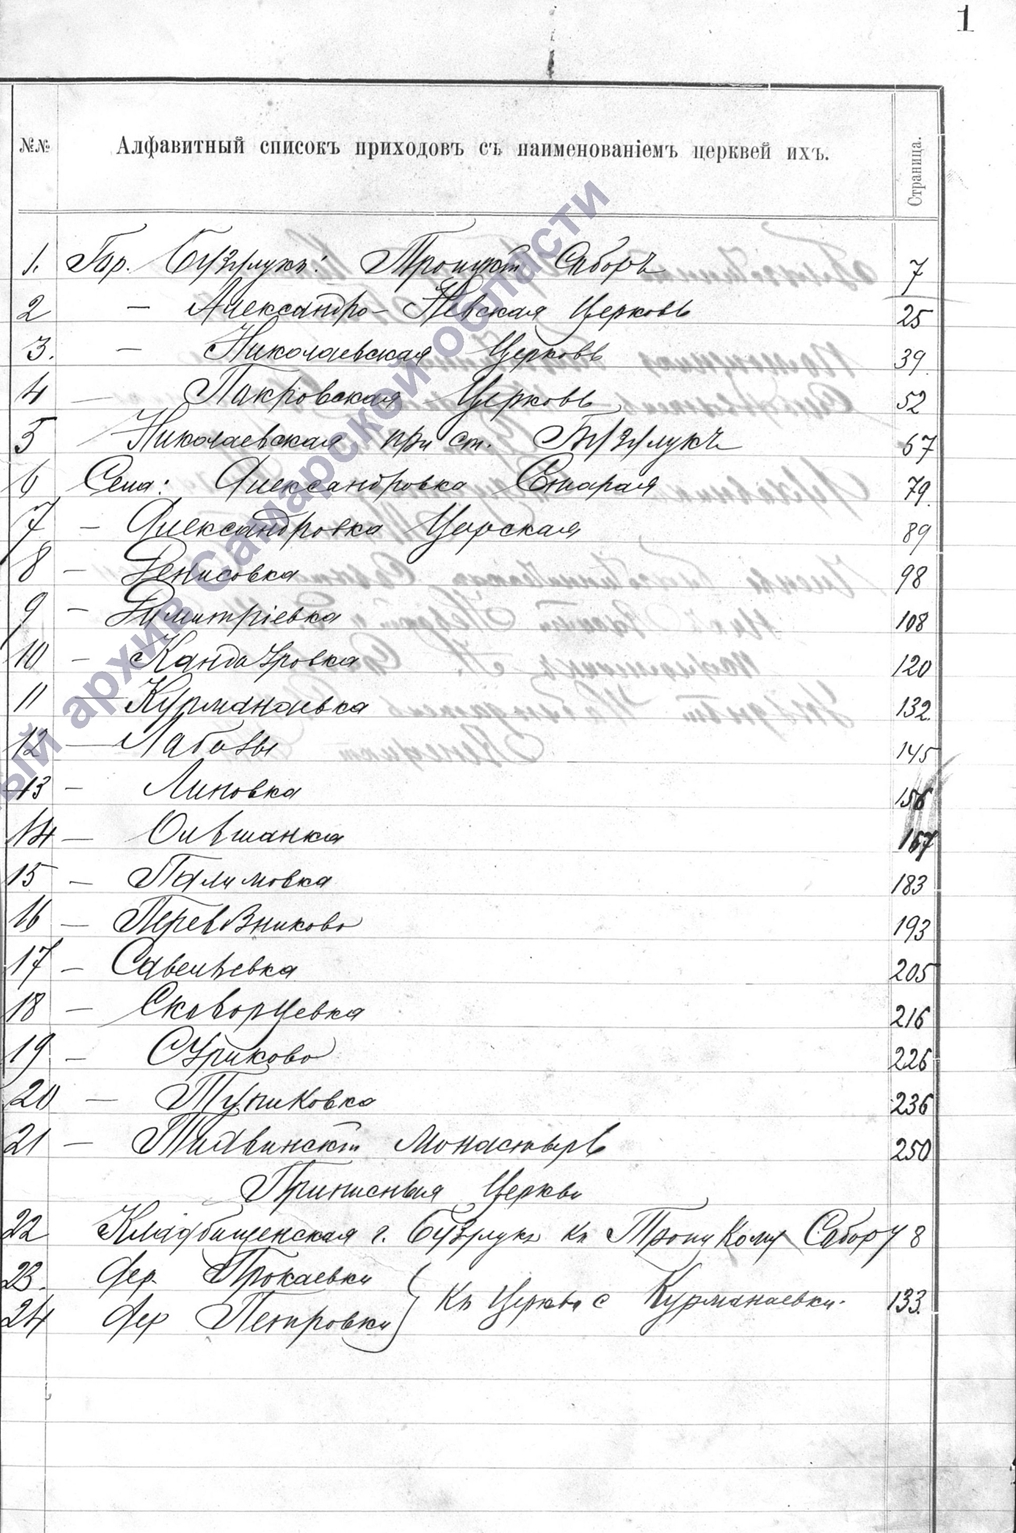 1
№№ Алфавитный списокъ приходовъ съ наименованіемъ церквей ихъ. Страница.
1. Гор. Бузулукъ: Троицкій Соборъ 7
2 — Александро-Невская Церковь 25
3. — Николаевская Церковь 39.
4 — Покровская Церковь 52
5 Николаевская при ст. Бузулукъ 67
6 Села: Александровка Старая 79.
7 — Александровка Царская 89
8 — Денисовка 98
9 — Димитріевка 108
10 — Кандауровка 120
11 — Курманаевка 132.
12 — Лабазы 145
13 — Липовка 156
14 — Ольшанка 167
15 — Палимовка 183
16 — Перевозниково 193
17 — Савельевка 205
18 — Скворцевка 216
19 — Суриково 226
20 — Тупиковка 236
21 — Тихвинскій Монастырь 250
Приписныя Церкви
22 Кладбищенская г. Бузулука къ Троицкому Собору 8
23. дер. Прокаевки
24 дер Петровки } Къ Церкви с Курманаевки. 133.
ый архив Самарской области